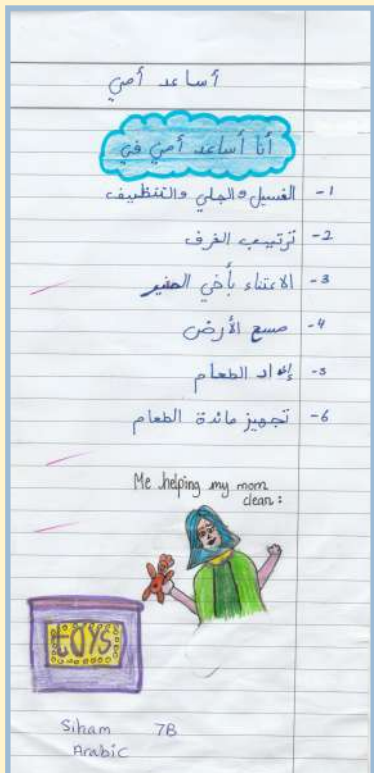 أساعد أمي
أنا أساعد أمي في
1- الغسيل والجلي والتنظيف
2- ترتيب الغرف
3- الاعتناء بأخي الصغير
4- مسح الأرض
5- إعداد الطعام
6- تجهيز مائدة الطعام
Me helping my mom
clean:
toys
Siham 7B
Arabic